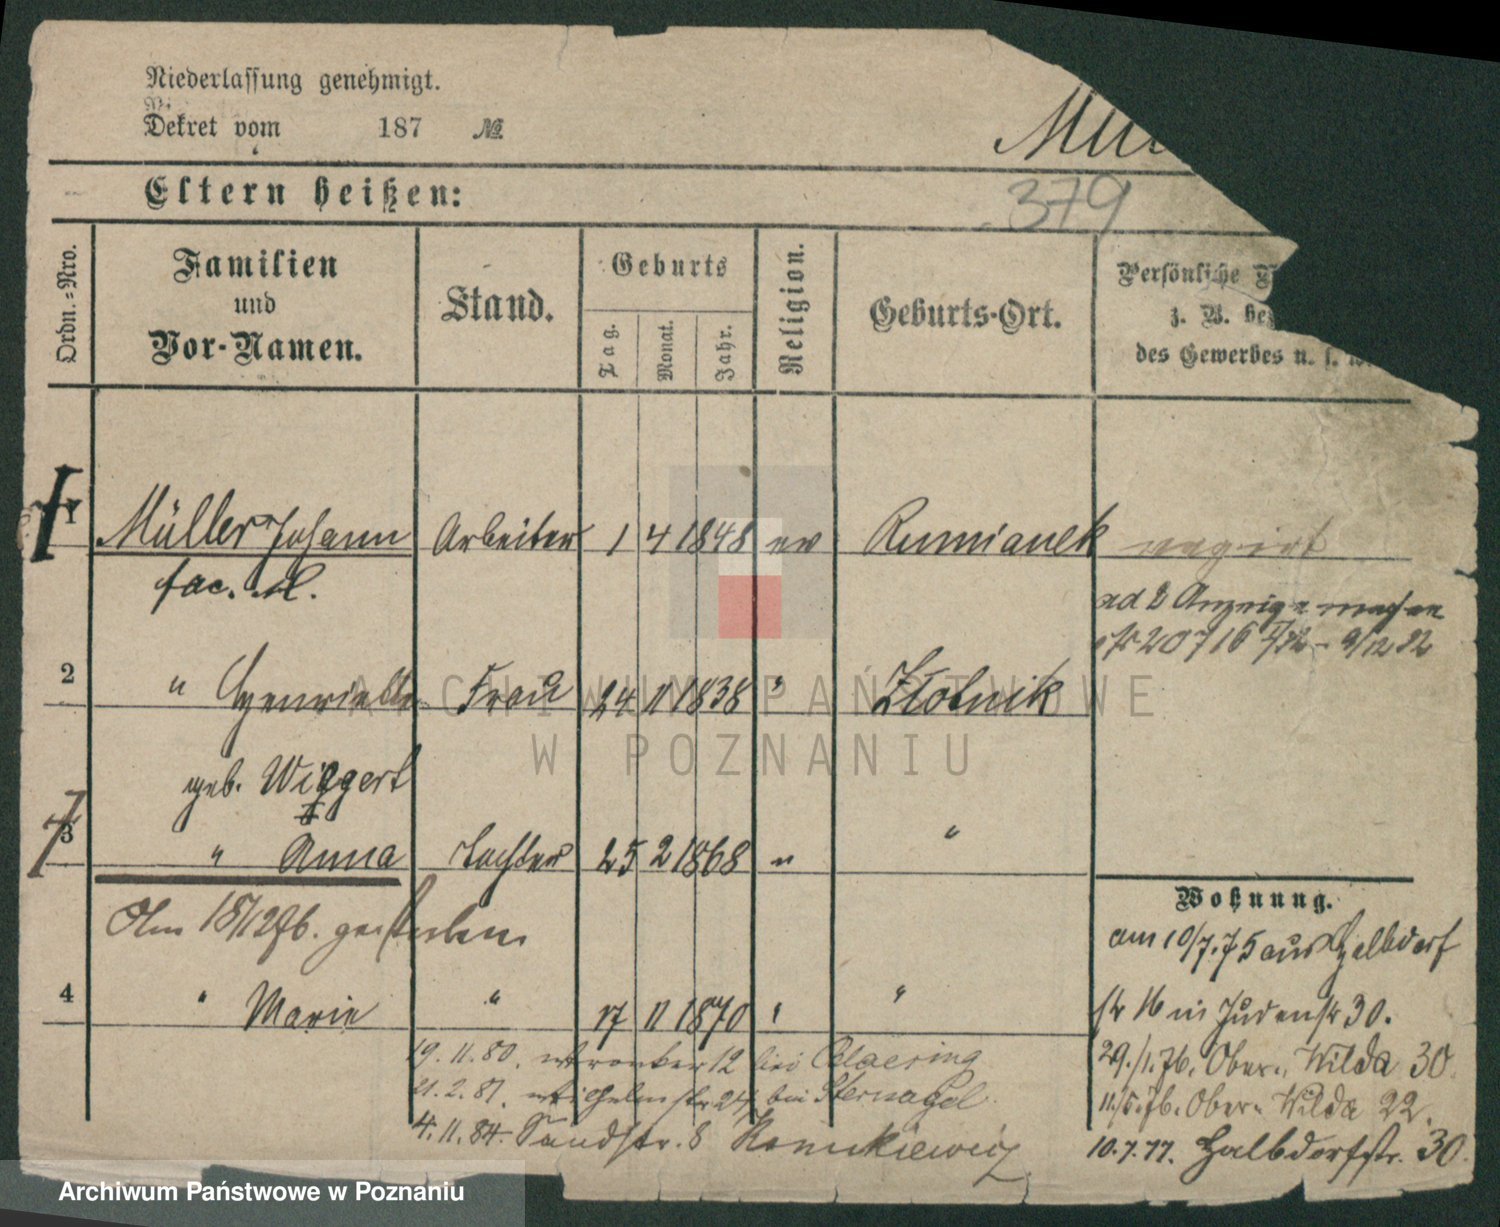 Niederlassung genehmigt.
Dekret vom 187 №
Mül
Eltern heißen:
379
Ordn.=Nro.
Familien und Vor-Namen.
Stand.
Geburts
Tag.
Monat.
Jahr.
Religion.
Geburts-Ort.
Persönliche
z. B. be
des Gewerbes u. s. w.
1 Müller Johann Arbeiter 1 4 1848 ev Rumianek
ad 2 Anzeige
2 " Henriette Frau 24 11 1838 " Złotnik
geb. Wiggert
3 " Anna Tochter 25 2 1868 " "
Wohnung.
Am 18/12 76. gestorben
am 10/7.75 aus Halbdorf
4 " Marie " 17 11 1870 " "
str 16 in Judenstr 30.
19. 11. 80. 12 bei
29./1.76. Ober Wilda 30.
21. 2. 81. Wilhelmstr 24 bei Sternagel
11./5.76. Ober Wilda 22.
4. 11. 84. Sandstr. 8
10.7.77. Halbdorfstr. 30.
ARCHIWUM PAŃSTWOWE
W POZNANIU
Archiwum Państwowe w Poznaniu